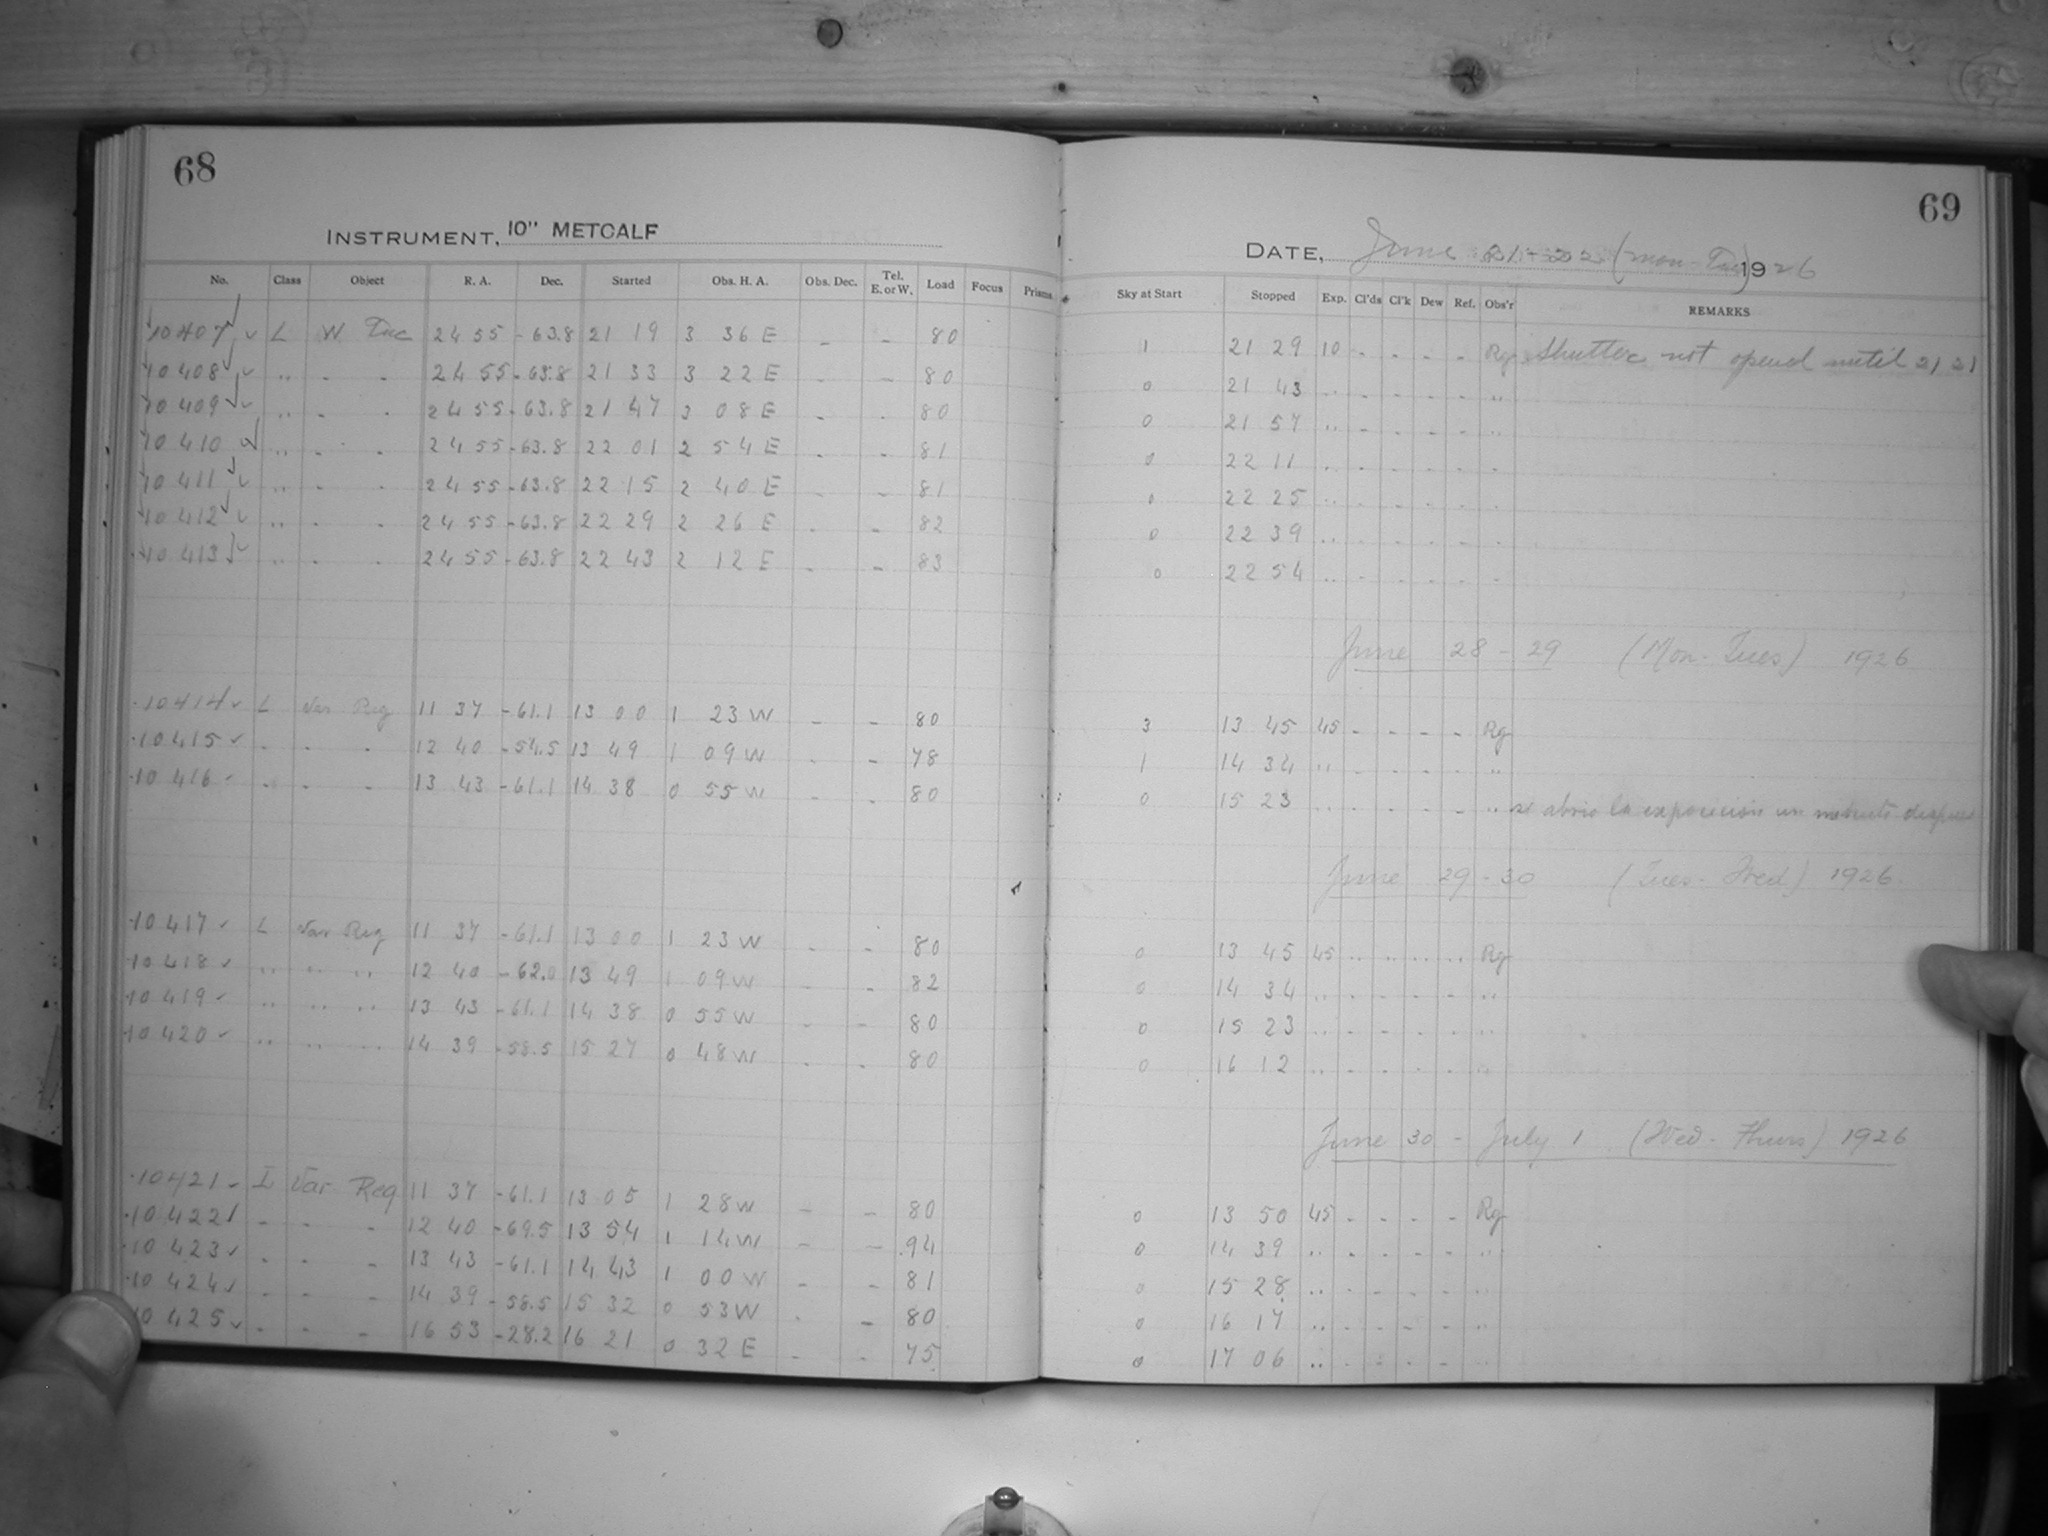 68
69
INSTRUMENT, 10" METCALF
DATE, June 21-22 (Mon-Tues) 1926
No. Class Object R. A. Dec. Started Obs. H. A. Obs. Dec. Tel. E. or W. Load Focus Prisms Sky at Start Stopped Exp. Cl'ds Cl'k Dew Ref. Obs'r REMARKS
10407 L W Tuc 24 55 -63.8 21 19 3 36 E - - 80 1 21 29 10 - - - - Rg Shutter not opend until 21 21
10408 " - - 24 55 -63.8 21 33 3 22 E - - 80 0 21 43 " - - - - "
10409 " - - 24 55 -63.8 21 47 3 08 E - - 80 0 21 57 " - - - - "
10410 " - - 24 55 -63.8 22 01 2 54 E - - 81 0 22 11 " - - - - -
10411 " - - 24 55 -63.8 22 15 2 40 E - - 81 0 22 25 " - - - - -
10412 " - - 24 55 -63.8 22 29 2 26 E - - 82 0 22 39 " - - - - -
10413 " - - 24 55 -63.8 22 43 2 12 E - - 83 0 22 54 " - - - - -
June 28-29 (Mon-Tues) 1926
10414 L Var Reg 11 37 -61.1 13 00 1 23 W - - 80 3 13 45 45 - - - - Rg
10415 - - - 12 40 -54.5 13 49 1 09 W - - 78 1 14 34 " - - - - "
10416 - - - 13 43 -61.1 14 38 0 55 W - - 80 0 15 23 " - - - - " se abrio la exposicion un minuto despues
June 29-30 (Tues-Wed) 1926
10417 L Var Reg 11 37 -61.1 13 00 1 23 W - - 80 0 13 45 45 " " " " Rg
10418 " " " 12 40 -62.0 13 49 1 09 W - - 82 0 14 34 " - - - - "
10419 " " " 13 43 -61.1 14 38 0 55 W - - 80 0 15 23 " - - - - "
10420 " " " 14 39 -58.5 15 27 0 48 W - - 80 0 16 12 " - - - - "
June 30 - July 1 (Wed-Thurs) 1926
10421 L Var Reg 11 37 -61.1 13 05 1 28 W - - 80 0 13 50 45 - - - - Rg
10422 - - - 12 40 -69.5 13 54 1 14 W - - 94 0 14 39 " - - - - "
10423 - - - 13 43 -61.1 14 43 1 00 W - - 81 0 15 28 " - - - - "
10424 - - - 14 39 -58.5 15 32 0 53 W - - 80 0 16 17 " - - - - "
10425 - - - 16 53 -28.2 16 21 0 32 E - - 75 0 17 06 " - - - - "